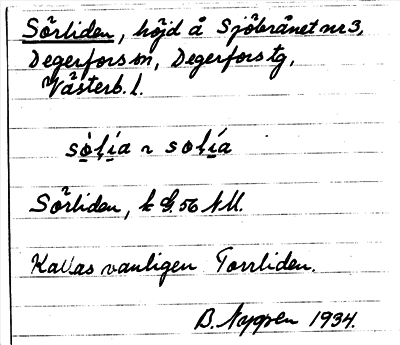 Sörliden, höjd å Sjöbrånet nr 3,
Degerfors sn, Degerfors tg,
Västerb. l.
Sörliden, k G. 56 N.U.
Kallas vanligen Torrliden.
B. Nygren 1934.